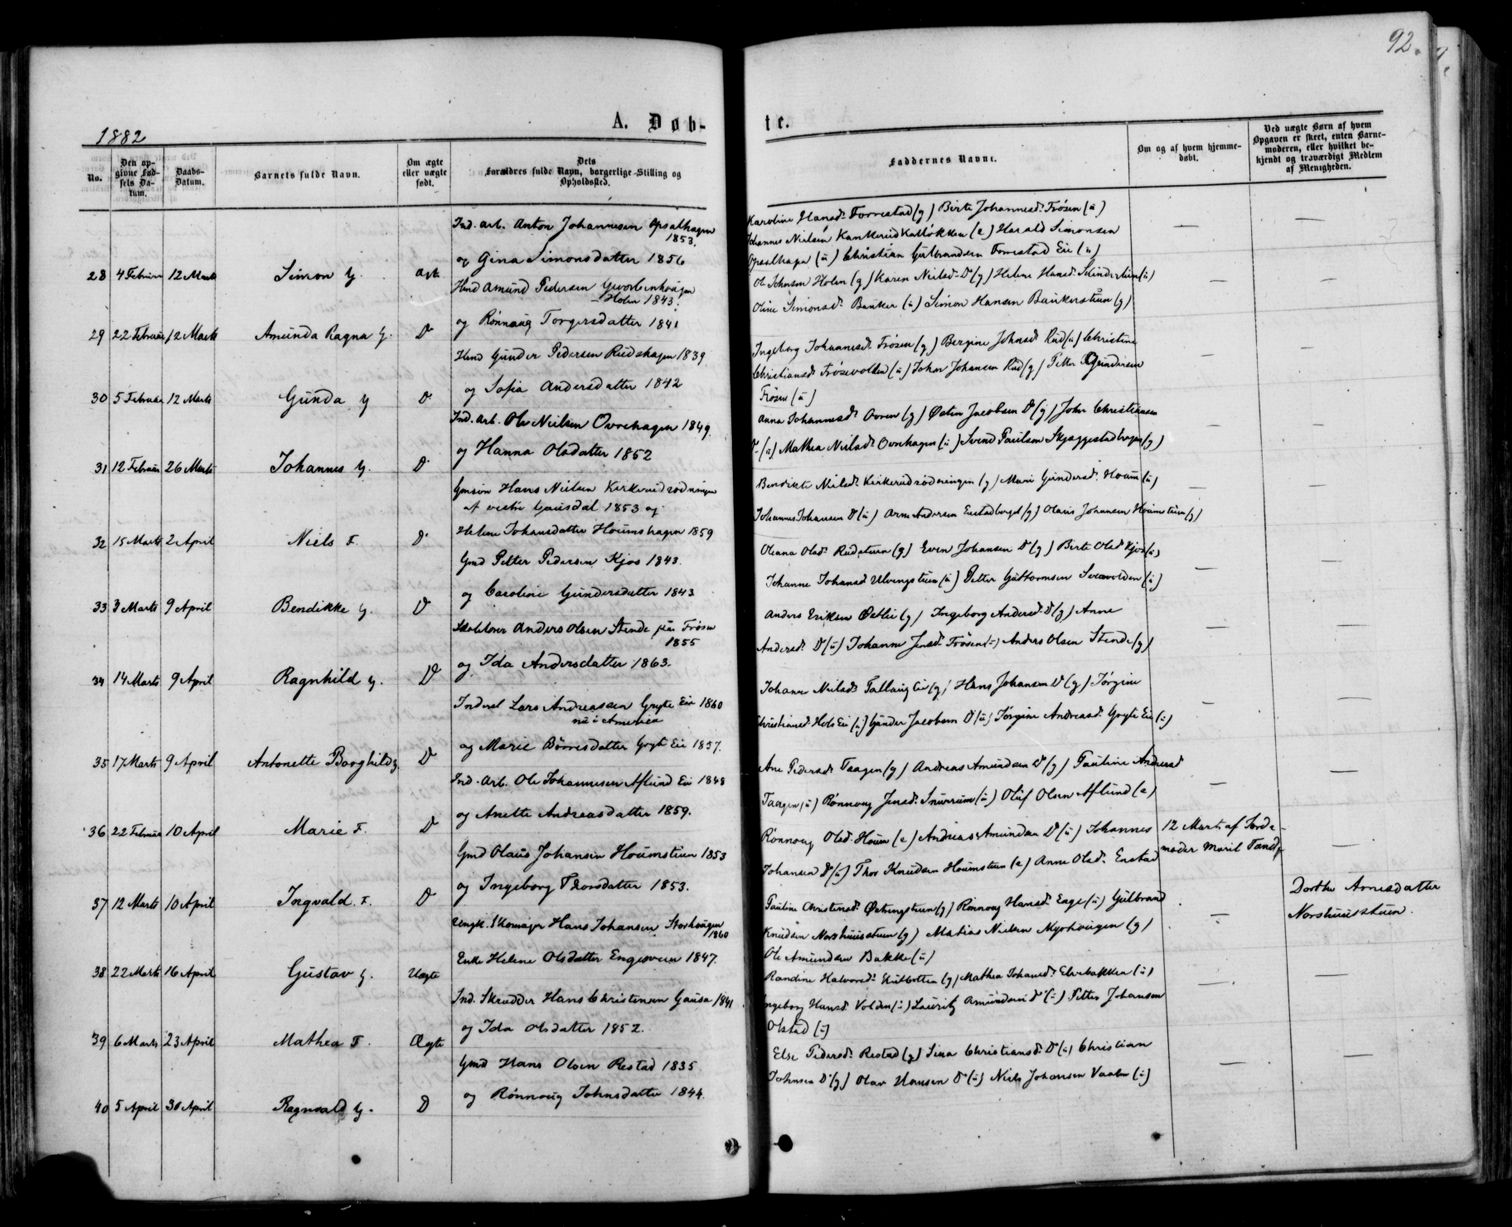 92.
1882
A. Døb-
te.
No.
Den op-
givne Fød-
sels Da-
tum.
Daabs-
Datum.
Barnets fulde Navn.
Om ægte
eller uægte
født.
Dets
Forældres fulde Navn, borgerlige Stilling og
Opholdssted.
Faddernes Navne.
Om og af hvem hjemme-
døbt.
Ved uægte Børn af hvem
Opgaven er skeet, enten Barne-
moderen, eller hvilket be-
kjendt og troværdigt Medlem
af Menigheden.
Ind. arb. Anton Johannesen Opsalhagen
1853.
28 4 Februar 12 Marts Simon G. ægte og Gina Simonsdatter 1856
Karoline Hansd. Forrestad (g) Birte Johannesd. Frøsen (u)
Johannes Nielsen Kankerudkalløkken (e) Harald Simonsen
Opsalhagen (u) Christian Gulbrandsen Forrestad Eie (u)
Hmd Amund Pedersen
Holen 1843.
29 22 Februar 12 Marts Amunda Ragna G. D og Rønnaug Torgersdatter 1841
Ole Johnsen Holen (g) Karen Nielsd. D (g) Helene Hansd.
Oline Simonsd. Banker (u) Simon Hansen Bankerstuen (g)
Hmd Gunder Pedersen Rudshagen 1839
30 5 Februar 12 Marts Gunda G D og Sofia Andersdatter 1842
Ingeborg Johannesd. Frøsen (g) Bergine Johnsd. Rud (u) Christine
Christiansd. Frøsevolden (u) Johan Johansen Rud (g) Petter Gundersen
Frøsen (u)
Ind. Arb. Ole Nielsen Ovrehagen 1849.
31 12 Februar 26 Marts Johannes G. D og Hanna Olsdatter 1852
Anna Johannesd. Ovren (g) Østen Jacobsen D (g) John Christiansen
D (u) Mathea Nielsd. Ovrehagen (u) Svend Paulsen Skjæggestadhagen (g)
Hans Nielsen Kirkerudrødningen
af vestre Gausdal 1853 og
32 15 Marts 2 April Niels F. D. Helene Johansdatter Houmshagen 1859
Bendikte Nielsd. Kirkerudrødningen (g) Mari Gundersd. Houm (u)
Johannes Johansen D (u) Arne Andersen (g) Olaus Johansen Houmstuen (g)
Gmd Petter Pedersen Kjos 1843.
33 3 Marts 9 April Bendikke G. D og Caroline Gundersdatter 1843
Oleana Olsd. Rudstuen (g) Even Johansen D (g) Berte Olsd. Kjos (u)
Johanne Johansd. Ulvingstuen (u) Petter Guttormsen (u)
Anders Olsen Stende paa Frøsen
1855
34 14 Marts 9 April Ragnhild G. D og Ida Andersdatter 1863.
Anders Eriksen Østlie (g) Ingeborg Andersd. D (g) Anne
Andersd. D (u) Johanne Jensd. Frøsen (u) Anders Olsen Stende (g)
Lars Andreassen Grytes Eie 1860
nu i Amerika
35 17 Marts 9 April Antonette Borghild G D og Marie Børresdatter Gryte Eie 1857.
Johanne Nielsd. (g) Hans Johansen D (g) Jørgine
Christiansd. Hols Eie (u) Gunder Jacobsen D (u) Jørgine Andreasd. Gryte Eie (u)
Ind. Arb. Ole Johannesen Aflund Eie 1848
36 22 Februar 10 April Marie F. D og Anette Andreasdatter 1859.
Ane Pedersd. Taagen (g) Andreas Amundsen D (g) Pauline Andersd
Taagen (u) Rønnoug Jensd. Snurrum (u) Oluf Olsen Aflund (e)
Gmd Olaus Johansen Houmstuen 1853
37 12 Marts 10 April Ingvald F. D og Ingeborg Thorsdatter 1853.
Rønnoug Olsd. Houm (e) Andreas Amundsen D (u) Johannes
Johansen D (u) Thor Knudsen Houmstuen (e) Anne Olsd. Enstad
12 Marts af Jorde-
moder Marit
Ungk. Skomager Hans Johansen Storhaugen
1860
38 22 Marts 16 April Gustav G. Uægte Enke Helene Olsdatter Engesveen 1847.
Pauline Christensd. Østingstuen (g) Rønnoug Hansd. Enge (u) Gulbrand
Knudsen Norshuusstuen (g) Matias Nielsen Myrhaugen (g)
Ole Amundsen Bakke (u)
Dorthe Arnesdatter
Norshuusstuen.
Ind. Skrædder Hans Christensen Gausa 1841
39 6 Marts 23 April Mathea F. Ægte og Ida Olsdatter 1852.
Randine Halvorsd. (g) Mathea Johansd. Elvebakken (u)
Ingeborg Hansd. Volden (u) Lauritz Amundsen D (u) Petter Johansen
Olstad (u)
Gmd Hans Olsen Restad 1835
40 5 April 30 April Ragnvald G. D og Rønnoug Johnsdatter 1844.
Else Pedersd. Restad (g) Lina Christiansd. D (u) Christian
Johnsen D (g) Olav Hansen D (u) Niels Johansen Vaalen (u)